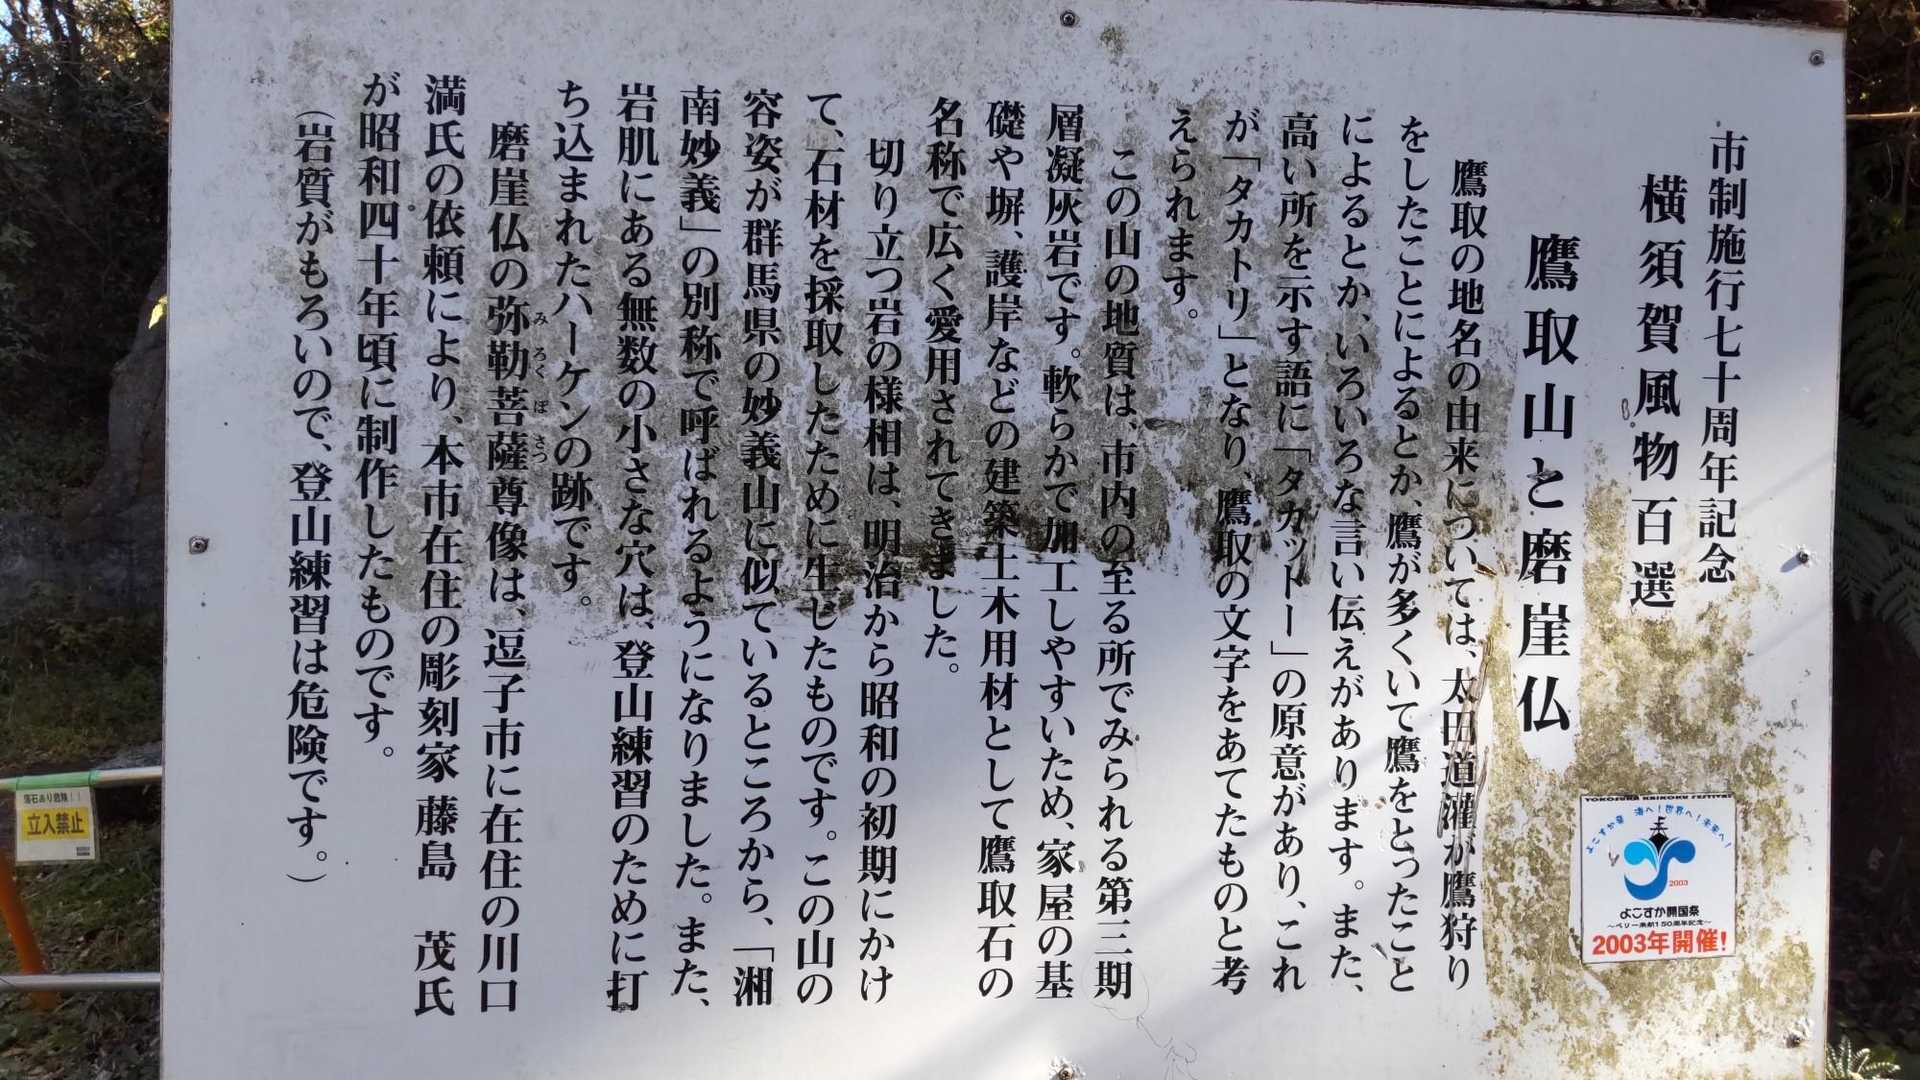 市制施行七十周年記念
横須賀風物百選
鷹取山と磨崖仏
鷹取の地名の由来については、太田道灌が鷹狩り
をしたことによるとか、鷹が多くいて鷹をとったこと
によるとか、いろいろな言い伝えがあります。また、
高い所を示す語に「タカットー」の原意があり、これ
が「タカトリ」となり、鷹取の文字をあてたものと考
えられます。
この山の地質は、市内の至る所でみられる第三期
層凝灰岩です。軟らかで加工しやすいため、家屋の基
礎や塀、護岸などの建築土木用材として鷹取石の
名称で広く愛用されてきました。
切り立つ岩の様相は、明治から昭和の初期にかけ
て、石材を採取したために生じたものです。この山の
容姿が群馬県の妙義山に似ているところから、「湘
南妙義」の別称で呼ばれるようになりました。また、
岩肌にある無数の小さな穴は、登山練習のために打
ち込まれたハーケンの跡です。
磨崖仏の弥勒菩薩尊像は、逗子市に在住の川口
みろくぼさつ
満氏の依頼により、本市在住の彫刻家 藤島 茂氏
が昭和四十年頃に制作したものです。
(岩質がもろいので、登山練習は危険です。)
YOKOSUKA KAIKOKU FESTIVAL
よこすか発 海へ!世界へ!未来へ!
2003
よこすか開国祭
～ペリー来航150周年記念～
2003年開催!
落石あり危険!!
立入禁止